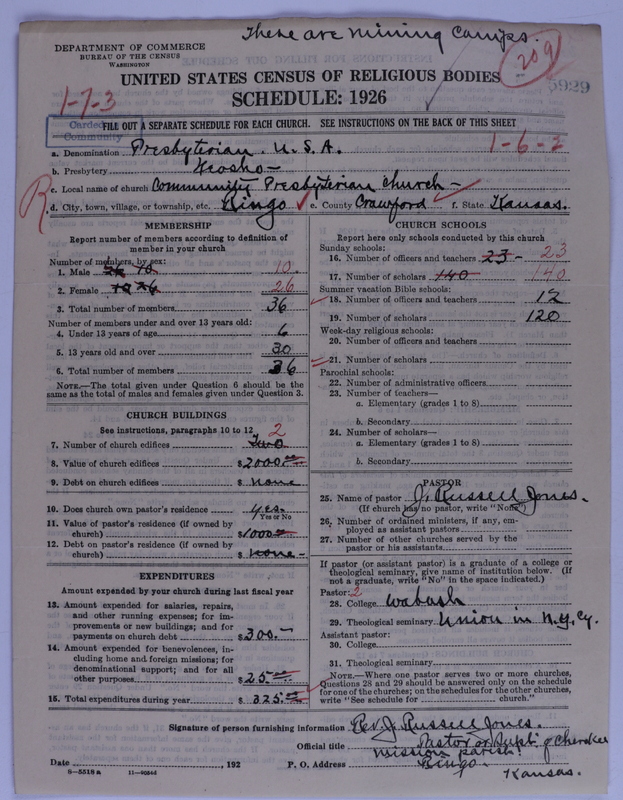 These are mining camps.
DEPARTMENT OF COMMERCE
BUREAU OF THE CENSUS
WASHINGTON
209
5929
UNITED STATES CENSUS OF RELIGIOUS BODIES
SCHEDULE: 1926
1-7-3
Carded
Community
FILL OUT A SEPARATE SCHEDULE FOR EACH CHURCH. SEE INSTRUCTIONS ON THE BACK OF THIS SHEET
a. Denomination Presbyterian U.S.A. 1-6-2
b. Presbytery Neosho
R
c. Local name of church Community Presbyterian Church
d. City, town, village, or township, etc. Ringo e. County Crawford f. State Kansas.
MEMBERSHIP
Report number of members according to definition of
member in your church
Number of members, by sex:
1. Male 10 10
2. Female 26 26
3. Total number of members 36
Number of members under and over 13 years old:
4. Under 13 years of age 6
5. 13 years old and over 30
6. Total number of members 36
NOTE.—The total given under Question 6 should be the
same as the total of males and females given under Question 3.
CHURCH BUILDINGS
See instructions, paragraphs 10 to 12
7. Number of church edifices Two 2
8. Value of church edifices $ 2000.00
9. Debt on church edifices $ none
10. Does church own pastor's residence yes.
Yes or No
11. Value of pastor's residence (if owned by
church) $ 1000.00
12. Debt on pastor's residence (if owned by
church) $ none
EXPENDITURES
Amount expended by your church during last fiscal year
13. Amount expended for salaries, repairs,
and other running expenses; for im-
provements or new buildings; and for
payments on church debt $ 300.
14. Amount expended for benevolences, in-
cluding home and foreign missions; for
denominational support; and for all
other purposes $ 25.00
15. Total expenditures during year $ 325.00
CHURCH SCHOOLS
Report here only schools conducted by this church
Sunday schools:
16. Number of officers and teachers 23 23
17. Number of scholars 140 140
Summer vacation Bible schools:
18. Number of officers and teachers 12
19. Number of scholars 120
Week-day religious schools:
20. Number of officers and teachers
21. Number of scholars
Parochial schools:
22. Number of administrative officers
23. Number of teachers—
a. Elementary (grades 1 to 8)
b. Secondary
24. Number of scholars—
a. Elementary (grades 1 to 8)
b. Secondary
PASTOR
25. Name of pastor J. Russell Jones.
(If church has no pastor, write "None")
26. Number of ordained ministers, if any, em-
ployed as assistant pastors
27. Number of other churches served by the
pastor or his assistants
If pastor (or assistant pastor) is a graduate of a college or
theological seminary, give name of institution below. (If
not a graduate, write "No" in the space indicated.)
Pastor: 2
28. College Wabash
29. Theological seminary Union in N.Y. Cy.
Assistant pastor:
30. College
31. Theological seminary
NOTE.—Where one pastor serves two or more churches,
Questions 28 and 29 should be answered only on the schedule
for one of the churches; on the schedules for the other churches,
write "See schedule for church."
Signature of person furnishing information Rev. J. Russell Jones.
Official title Pastor or Supt. of Cherokee
mission parish.
Date , 192 P. O. Address Ringo.
Kansas.
8—5518 a